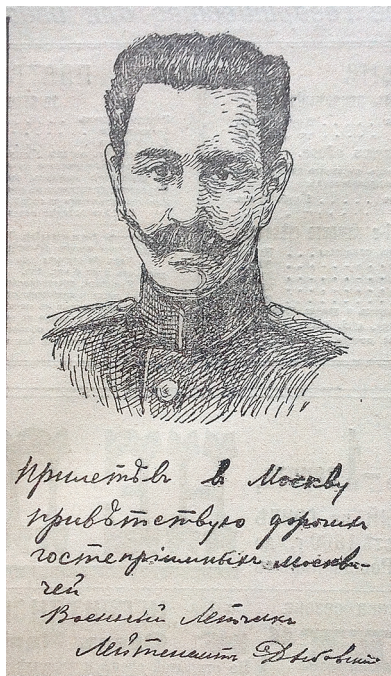 Прилетѣвъ въ Москву
привѣтствую дорогихъ
гостепріимныхъ москви-
чей
Военный Летчикъ
Лейтенантъ Дыбовскій